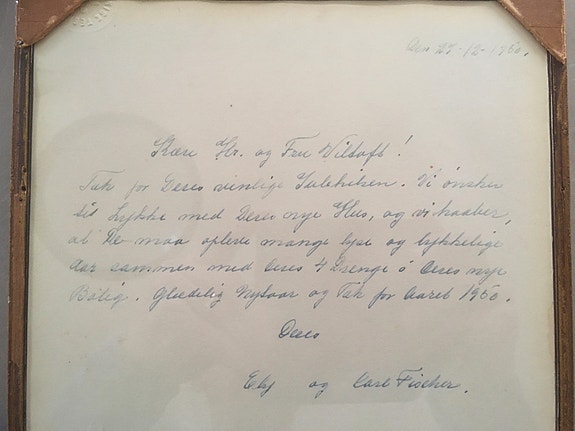 Den 27-12-1950.
Kære Hr. og Fru Wiltoft!
Tak for Deres venlige Julehilsen. Vi ønsker
til Lykke med Deres nye Hus, og vi haaber,
at De maa opleve mange lyse og lykkelige
Aar sammen med Deres 4 Drenge i Deres nye
Bolig. Glædelig Nytaar og Tak for Aaret 1950.
Deres
og Carl Fischer.